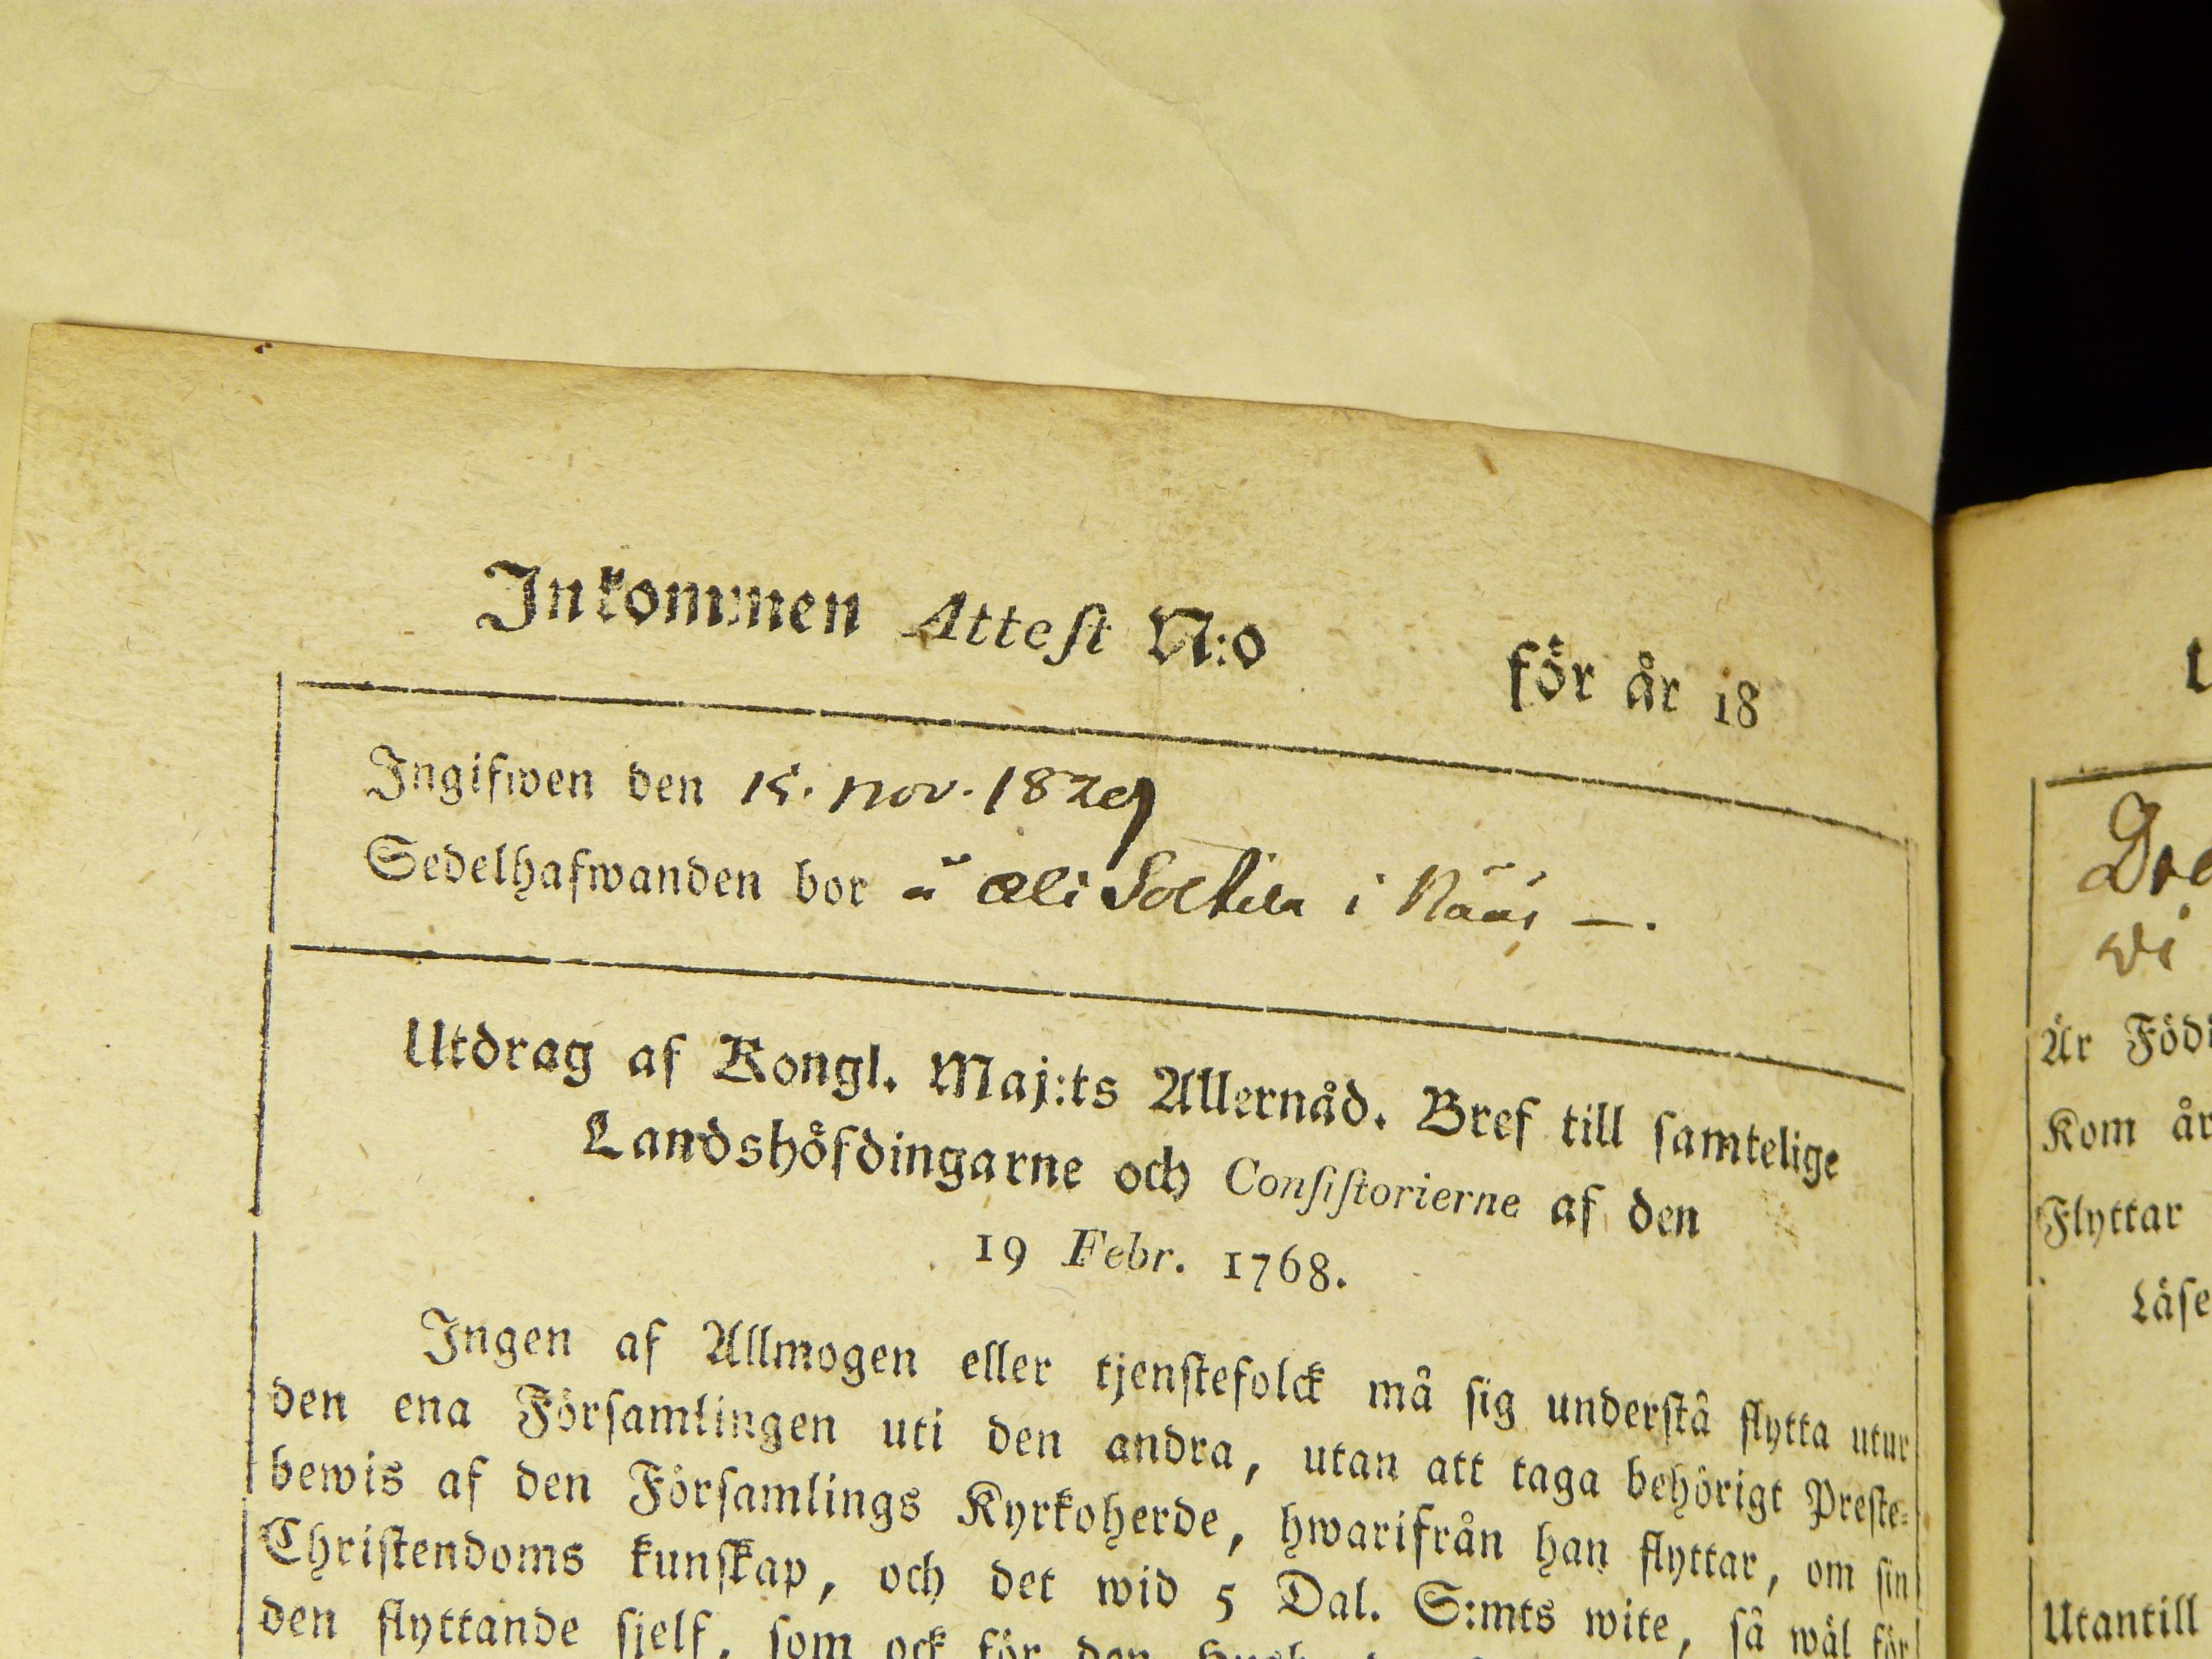 Inkommen Attest N:o för år 18
Ingifwen den 15. nov. 1829
Sedelhafwanden bor å i Nääs —.
Utdrag af Kongl. Maj:ts Allernåd. Bref till samtelige
Landshöfdingarne och Consistorierne af den
19 Febr. 1768.
Ingen af Allmogen eller tjenstefolck må sig understå flytta utur
den ena Församlingen uti den andra, utan att taga behörigt Preste-
bewis af den Församlings Kyrkoherde, hwarifrån han flyttar, om sin
Christendoms kunskap, och det wid 5 Dal. S:mts wite, så wäl för
den flyttande sjelf, som ock för den
wi
Är Född
Kom år
Flyttar
Läse
Utantill